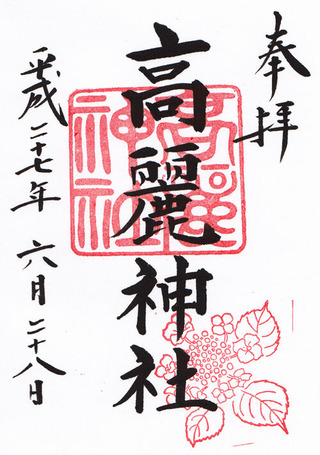 奉拝
高麗神社
平成二十七年 六月二十八日
高麗神社